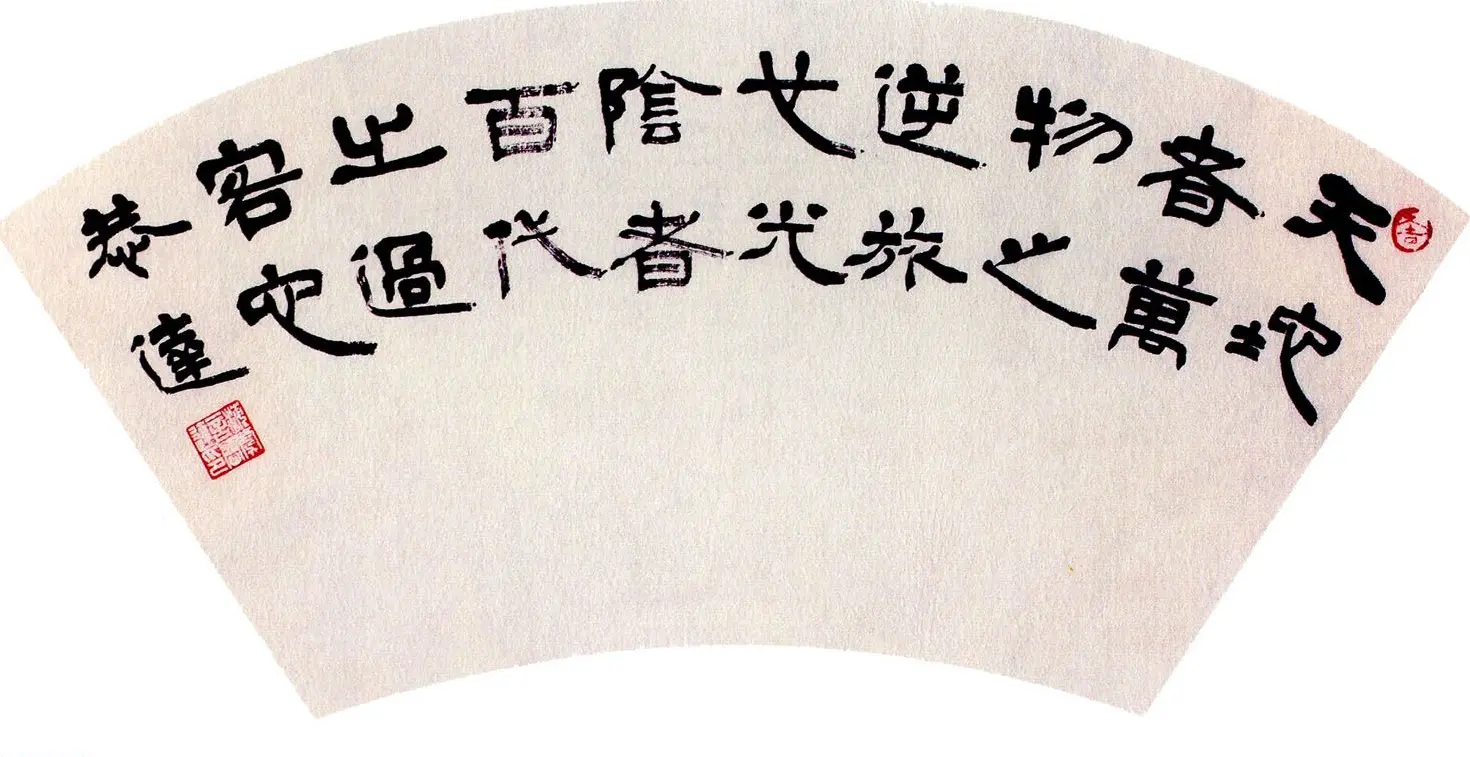 天地
者萬
物之
逆旅
也光
陰者
百代
之過
客也
恭達